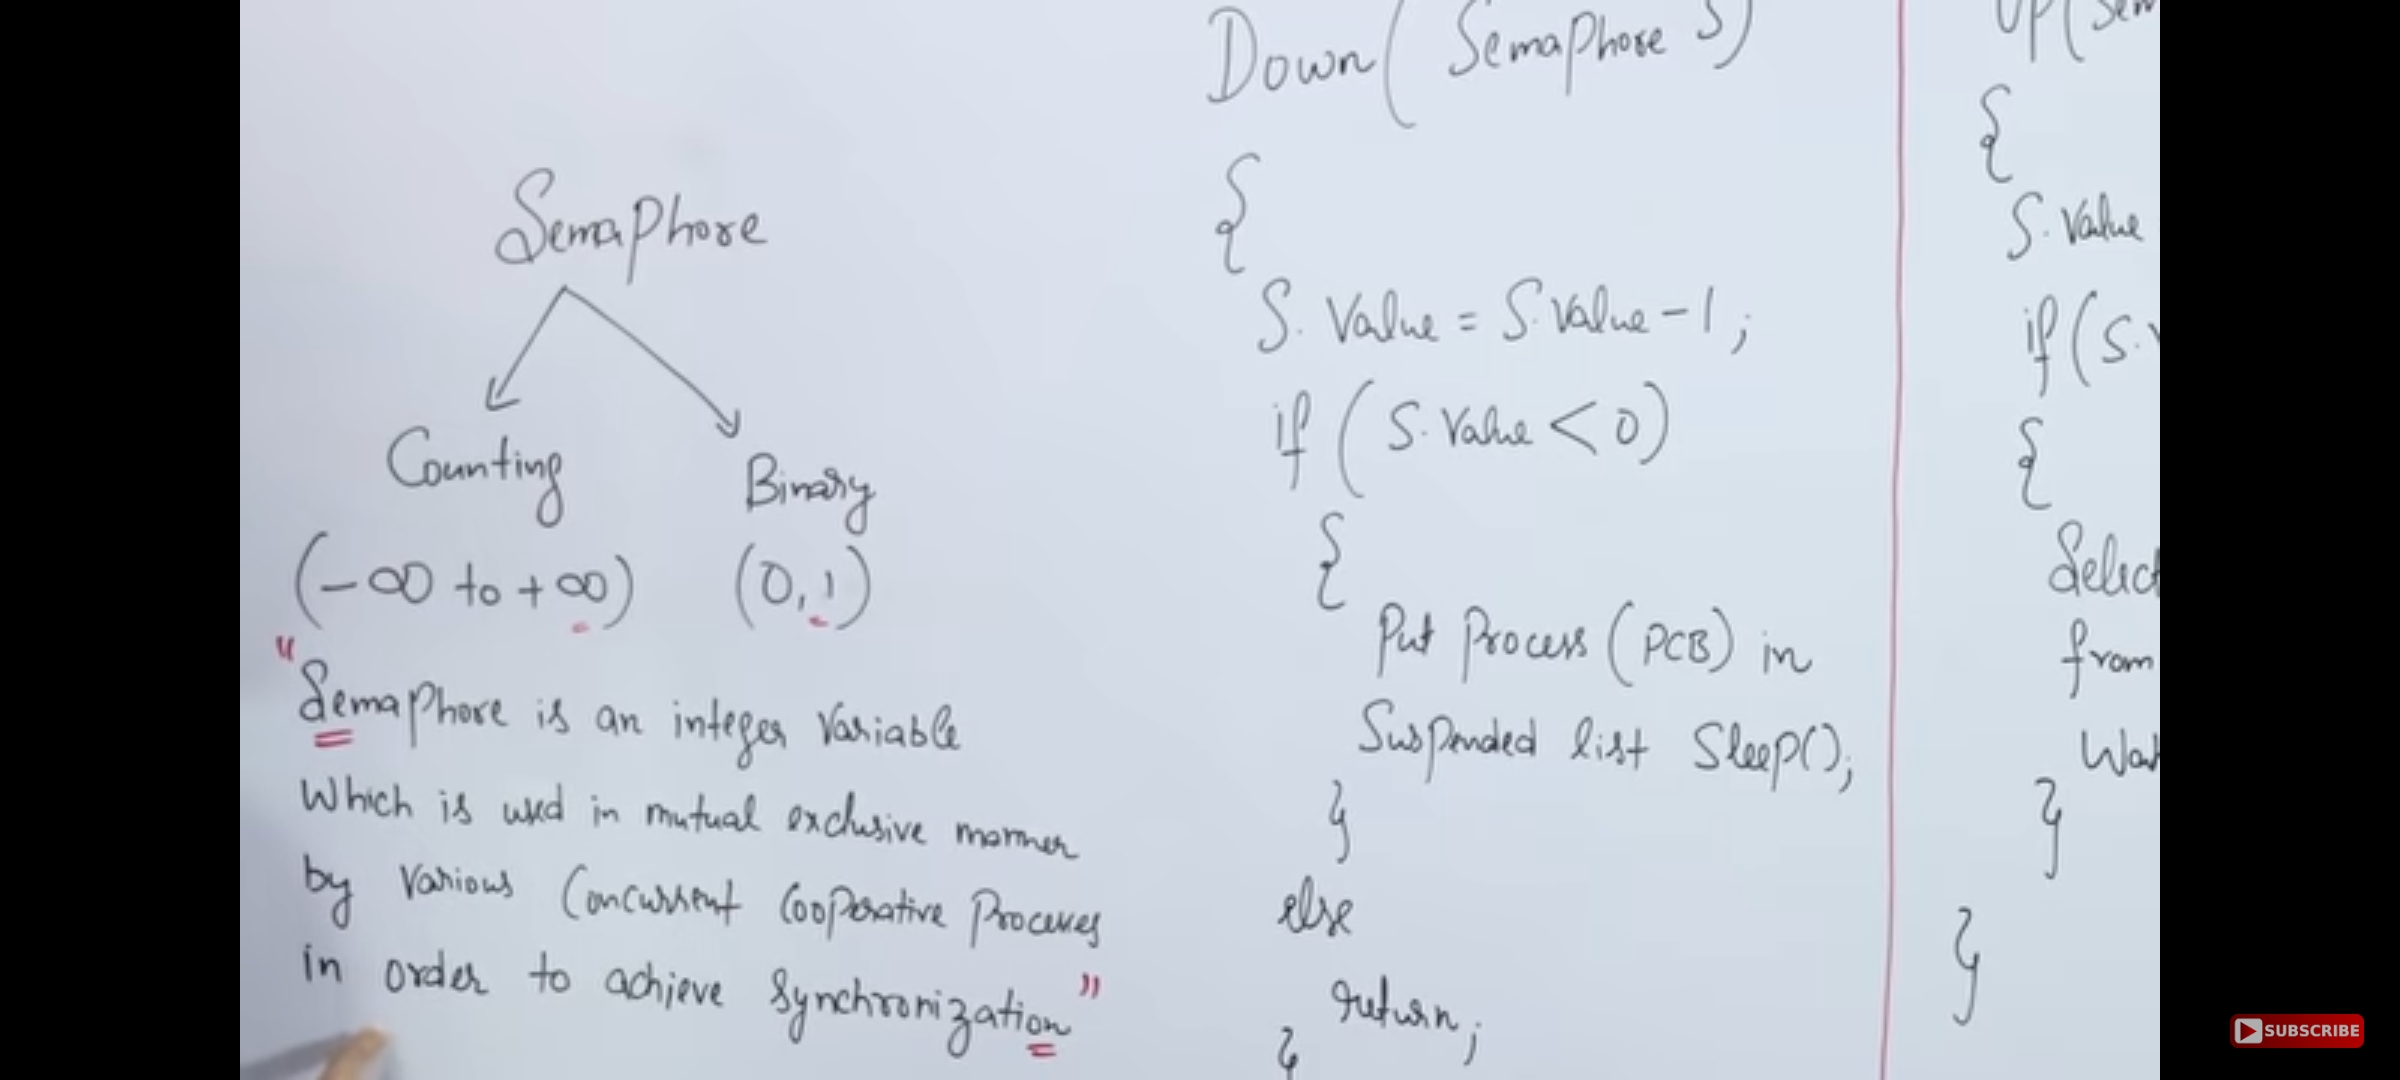 Semaphore
Counting
Binary
(-∞ to +∞)
(0,1)
"Semaphore is an integer Variable
Which is used in mutual exclusive manner
by various Concurrent Cooperative Processes
in order to achieve Synchronization"
Down( Semaphore S)
{
S. Value = S.Value-1;
if (S. Value < 0)
{
Put Process (PCB) in
Suspended list Sleep();
}
else
return;
}
UP(Sem
{
S. Value
if (S.
{
Select
from
}
}
SUBSCRIBE